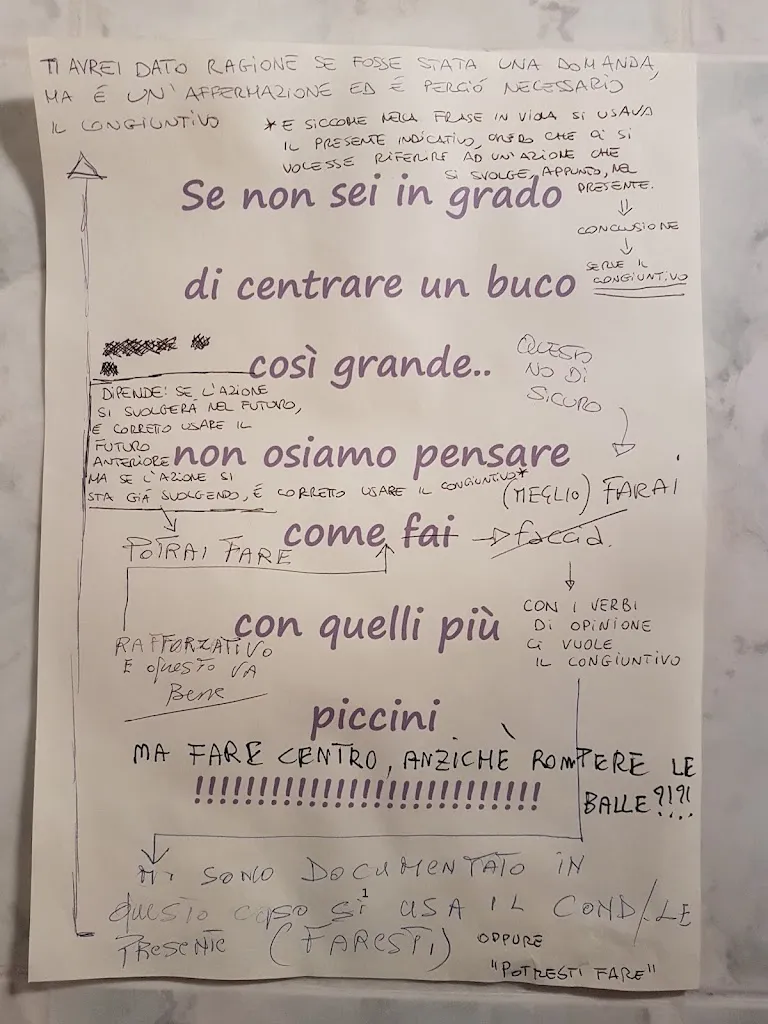 TI AVREI DATO RAGIONE SE FOSSE STATA UNA DOMANDA,
MA É UN'AFFERMAZIONE ED É PERCIÓ NECESSARIO
IL CONGIUNTIVO
* E SICCOME NELLA FRASE IN VIOLA SI USAVA
IL PRESENTE INDICATIVO, CREDO CHE CI SI
VOLESSE RIFERIRE AD UN'AZIONE CHE
SI SVOLGE, APPUNTO, NEL
PRESENTE.
CONCLUSIONE
SERVE IL
CONGIUNTIVO
Se non sei in grado
di centrare un buco
così grande..
QUESTO
NO DI
SICURO
DIPENDE: SE L'AZIONE
SI SVOLGERÀ NEL FUTURO,
É CORRETO USARE IL
FUTURO
ANTERIORE
MA SE L'AZIONE SI
STA GIÁ SVOLGENDO, É CORRETTO USARE IL CONGIUNTIVO*
non osiamo pensare
(MEGLIO) FARAI
come fai
faccia.
POTRAI FARE
CON I VERBI
DI OPINIONE
CI VUOLE
IL CONGIUNTIVO
con quelli più
RAFFORZATIVO
E QUESTO VA
Bene
piccini
MA FARE CENTRO, ANZICHÈ ROMPERE LE
BALLE?!?!
!!!!!!!!!!!!!!!!!!!!!!!!!!!!
MI SONO DOCUMENTATO IN
QUESTO CASO SI USA IL COND/LE
PRESENTE (FARESTI) OPPURE
"POTRESTI FARE"
1